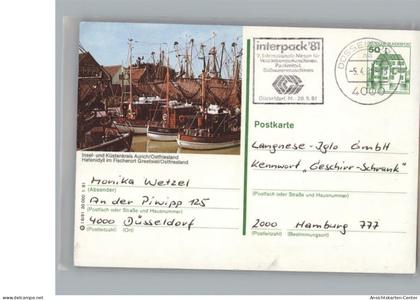 interpack '81
9. Internationale Messe für
Verpackungsmaschinen,
Packmittel,
Süßwarenmaschinen
Düsseldorf, 14.-20.5.81
-5.4
4000
DEUTSCHE BUNDESPOST
50
Insel- und Küstenkreis Aurich/Ostfriesland
Hafenidyll im Fischerort Greetsiel/Ostfriesland
Postkarte
Langnese-Iglo GmbH
Kennwort „Geschirr-Schrank"
(Postfach oder Straße und Hausnummer)
2000 Hamburg 777
(Postleitzahl) (Bestimmungsort)
Monika Wetzel
(Absender)
An der Piwipp 125
(Postfach oder Straße und Hausnummer)
4000 Düsseldorf
(Postleitzahl) (Ort)
www.ansichtskarten-center.de
Ansichtskarten-Center.Com